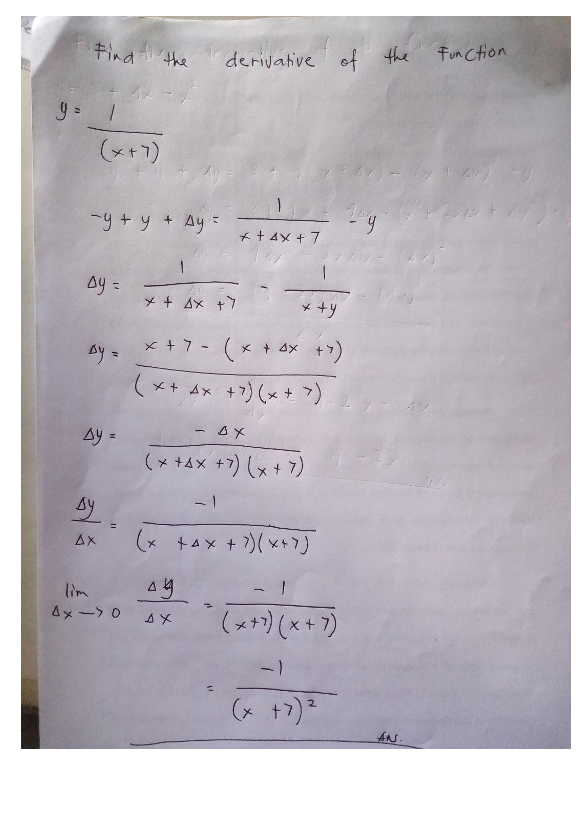 Find the derivative of the Function
y = 1 / (x+7)
-y + y + Δy = 1 / x + Δx + 7 - y
Δy = 1 / x + Δx + 7 - 1 / x + y
Δy = x + 7 - (x + Δx + 7) / (x + Δx + 7)(x + 7)
Δy = - Δx / (x + Δx + 7)(x + 7)
Δy / Δx = -1 / (x + Δx + 7)(x+7)
lim Δx → 0 Δy / Δx = -1 / (x+7)(x+7)
= -1 / (x +7)²
ANS.